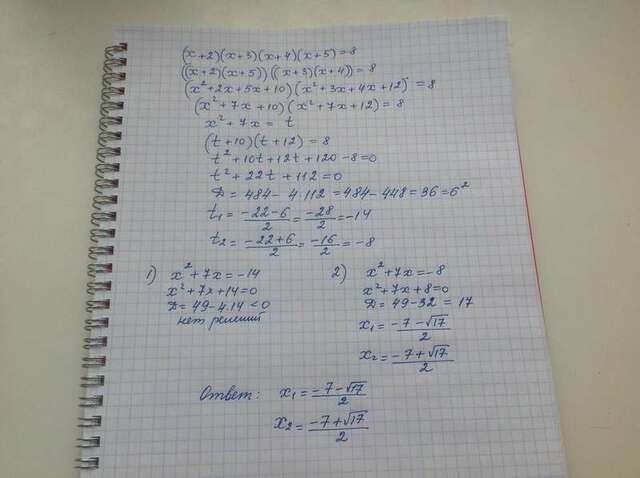 (x+2)(x+3)(x+4)(x+5)=8
((x+2)(x+5))((x+3)(x+4))=8
(x²+2x+5x+10)(x²+3x+4x+12)=8
(x²+7x+10)(x²+7x+12)=8
x²+7x = t
(t+10)(t+12)=8
t²+10t+12t+120-8=0
t²+22t+112=0
D = 484-4·112=484-448=36=6²
t₁ = (-22-6)/2 = -28/2 = -14
t₂ = (-22+6)/2 = -16/2 = -8
1) x²+7x=-14
x²+7x+14=0
D=49-4·14<0
нет решений
2) x²+7x=-8
x²+7x+8=0
D=49-32=17
x₁ = (-7-√17)/2
x₂ = (-7+√17)/2
Ответ: x₁ = (-7-√17)/2
x₂ = (-7+√17)/2